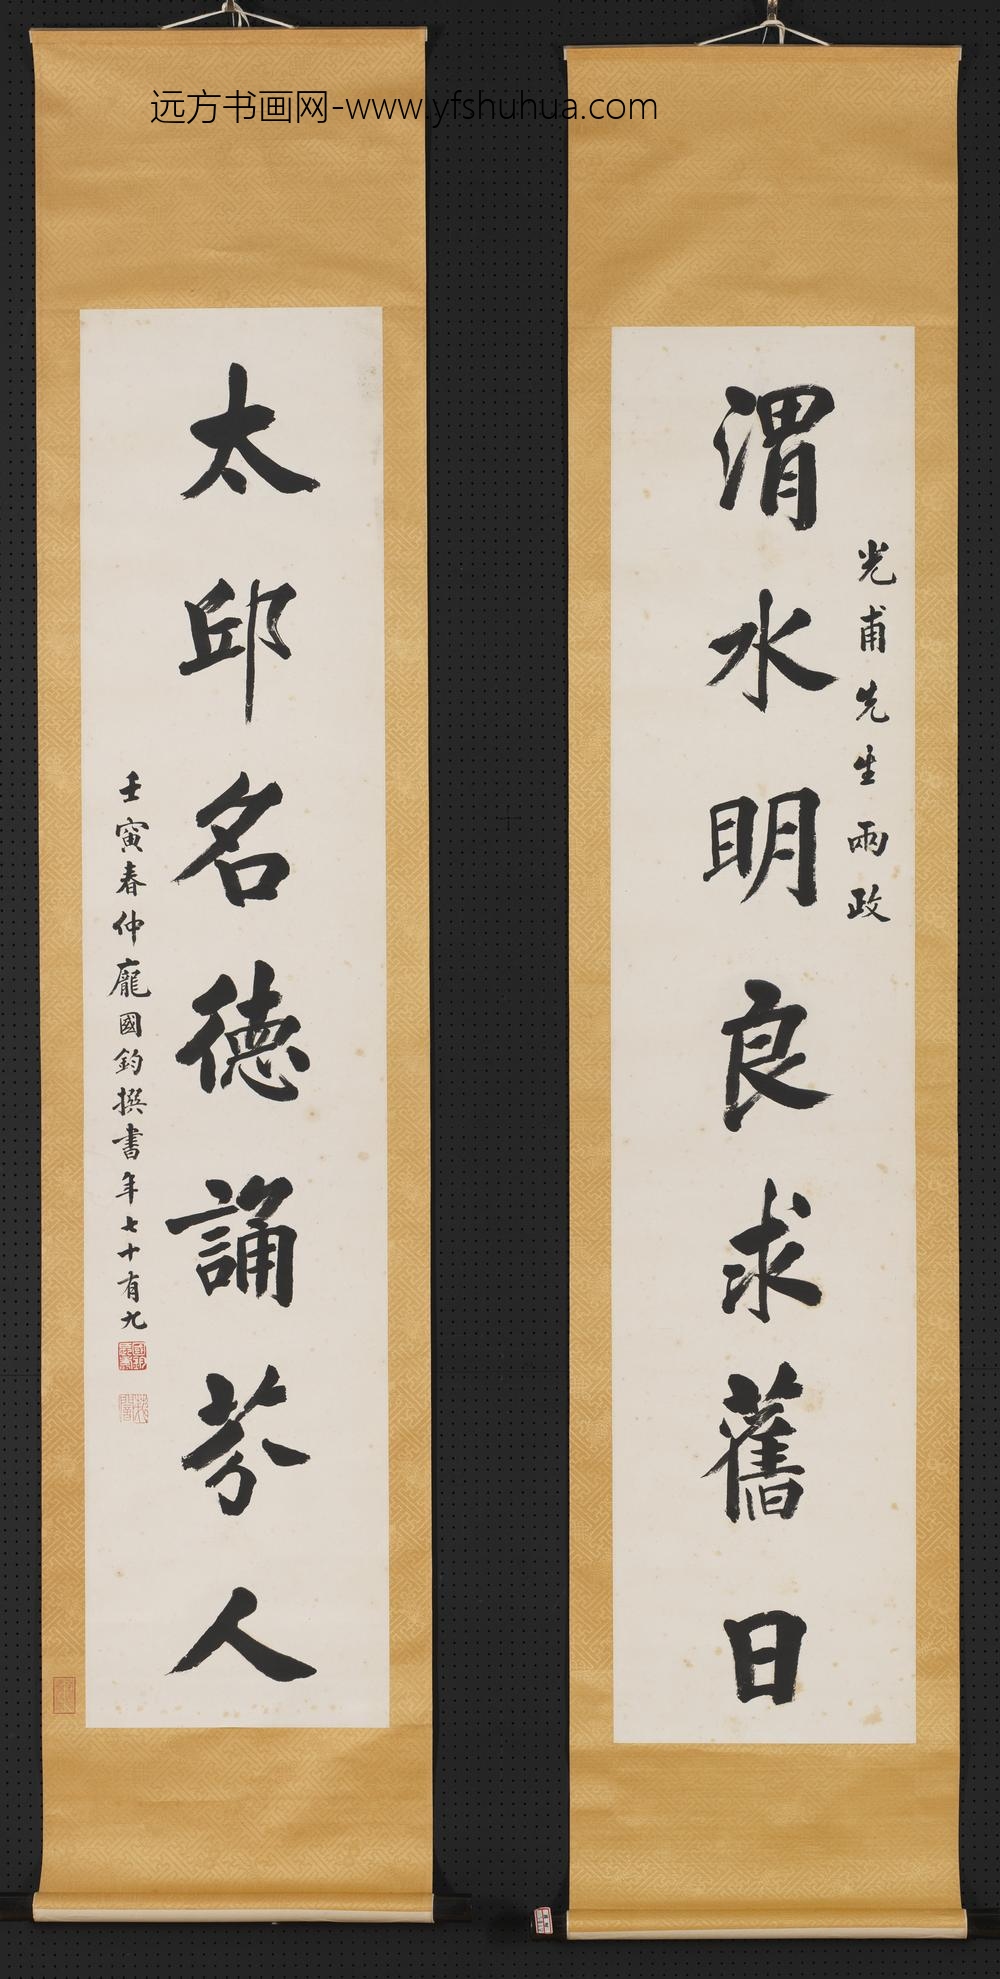 远方书画网-www.yfshuhua.com
光甫先生兩政
渭水明良求舊日
太邱名德誦芬人
壬寅春仲龐國鈞撰書年七十有九